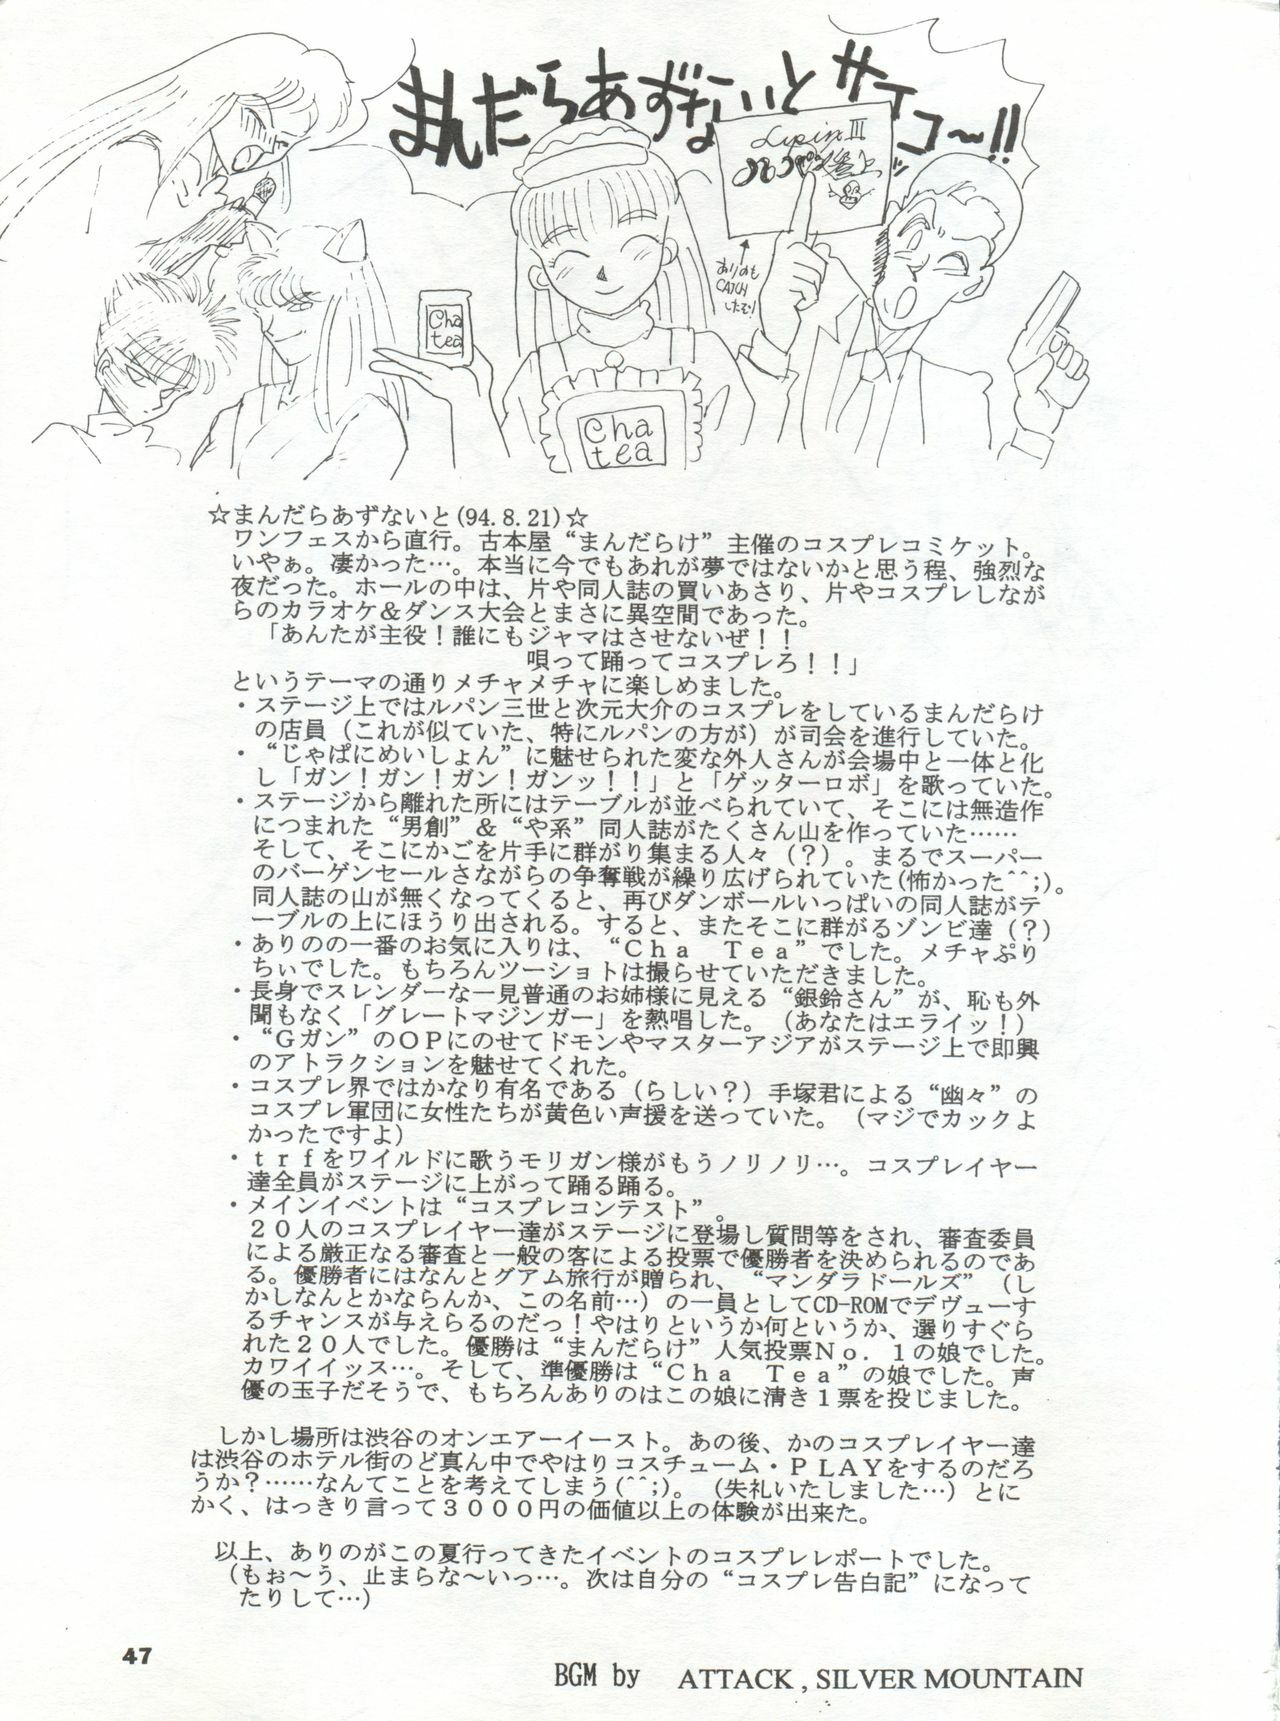 まんだらあずないと サイコ〜!!
Lupin III
ルパン参上
ありのも
CATCH
したモノ
Cha
tea
Cha
tea
☆まんだらあずないと(94.8.21)☆
ワンフェスから直行。古本屋“まんだらけ”主催のコスプレコミケット。
いやぁ。凄かった…。本当に今でもあれが夢ではないかと思う程、強烈な
夜だった。ホールの中は、片や同人誌の買いあさり、片やコスプレしなが
らのカラオケ＆ダンス大会とまさに異空間であった。
「あんたが主役！誰にもジャマはさせないぜ！！
唄って踊ってコスプレろ！！」
というテーマの通りメチャメチャに楽しめました。
・ステージ上ではルパン三世と次元大介のコスプレをしているまんだらけ
の店員（これが似ていた、特にルパンの方が）が司会を進行していた。
・“じゃぱにめいしょん”に魅せられた変な外人さんが会場中と一体と化
し「ガン！ガン！ガン！ガンッ！！」と「ゲッターロボ」を歌っていた。
・ステージから離れた所にはテーブルが並べられていて、そこには無造作
につまれた“男創”＆“や系”同人誌がたくさん山を作っていた……
そして、そこにかごを片手に群がり集まる人々（？）。まるでスーパー
のバーゲンセールさながらの争奪戦が繰り広げられていた(怖かった^^;)。
同人誌の山が無くなってくると、再びダンボールいっぱいの同人誌がテ
ーブルの上にほうり出される。すると、またそこに群がるゾンビ達（？）
・ありのの一番のお気に入りは、“Ｃｈａ　Ｔｅａ”でした。メチャぷり
ちぃでした。もちろんツーショトは撮らせていただきました。
・長身でスレンダーな一見普通のお姉様に見える“銀鈴さん”が、恥も外
聞もなく「グレートマジンガー」を熱唱した。（あなたはエライッ！）
・“Ｇガン”のＯＰにのせてドモンやマスターアジアがステージ上で即興
のアトラクションを魅せてくれた。
・コスプレ界ではかなり有名である（らしい？）手塚君による“幽々”の
コスプレ軍団に女性たちが黄色い声援を送っていた。（マジでカックよ
かったですよ）
・ｔｒｆをワイルドに歌うモリガン様がもうノリノリ…。コスプレイヤー
達全員がステージに上がって踊る踊る。
・メインイベントは“コスプレコンテスト”。
２０人のコスプレイヤー達がステージに登場し質問等をされ、審査委員
による厳正なる審査と一般の客による投票で優勝者を決められるのであ
る。優勝者にはなんとグアム旅行が贈られ、“マンダラドールズ”（し
かしなんとかならんか、この名前…）の一員としてCD-ROMでデヴューす
るチャンスが与えらるのだっ！やはりというか何というか、選りすぐら
れた２０人でした。優勝は“まんだらけ”人気投票Ｎｏ．１の娘でした。
カワイイッス…。そして、準優勝は“Ｃｈａ　Ｔｅａ”の娘でした。声
優の玉子だそうで、もちろんありのはこの娘に清き１票を投じました。
しかし場所は渋谷のオンエアーイースト。あの後、かのコスプレイヤー達
は渋谷のホテル街のど真ん中でやはりコスチューム・ＰＬＡＹをするのだろ
うか？……なんてことを考えてしまう(^^;)。（失礼いたしました…）とに
かく、はっきり言って３０００円の価値以上の体験が出来た。
以上、ありのがこの夏行ってきたイベントのコスプレレポートでした。
（もぉ〜う、止まらな〜いっ…。次は自分の“コスプレ告白記”になって
たりして…）
47
BGM by ATTACK , SILVER MOUNTAIN